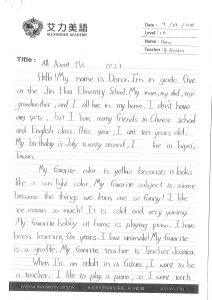 艾力美語
ALEXANDER ACADEMY
Date:
Level:
Name: Dora
Teacher:
Title: All About Me
Hello! My name is Dora. I'm in grade five
at the Jin Hua Elementry School. My mom, my dad, my
grandmother, and I all live in my home. I don't have
any pets, but I have many friends in Chinese school
and English class. This year, I am ten years old.
My birthday is July twenty second, I live in Taipei,
Taiwan.
My favorite color is yellow because it looks
like a sun light color. My favorite subject is science
because the things we learn are so funny! I like
ice cream so much! It is cold and very yummy.
My favorite hobby at home is playing piano. I have
been learning for years. I love animals! My favorite
is a giraffe. My favorite teacher is Teacher Jessica.
When I'm an adult in a future, I want to be
a teacher. I like to play a piano, so I want teach